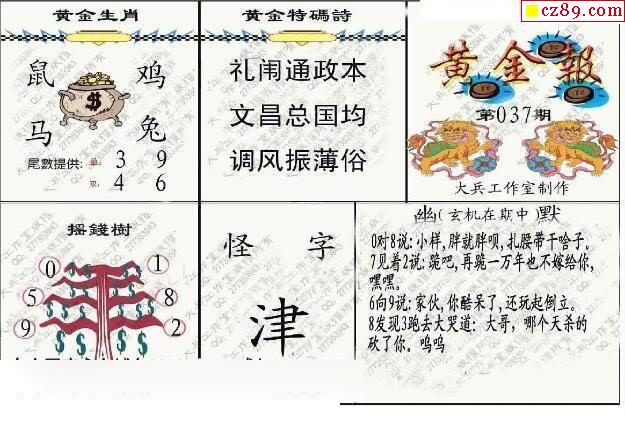 cz89.com
黄金生肖
鼠 鸡
马 兔
$
尾數提供: 单: 3 9
双: 4 6
黄金特碼詩
礼闹通政本
文昌总国均
调风振薄俗
黄金報
第037期
大兵工作室制作
摇錢樹
0 1
5 8
9 2
怪 字
津
幽(玄机在期中)默
0对8说:小样,胖就胖呗,扎腰带干啥子。
7见着2说:跪吧,再跪一万年也不嫁给你,
嘿嘿。
6向9说:家伙,你酷呆了,还玩起倒立。
8发现3跑去大哭道:大哥,哪个天杀的
砍了你。呜呜